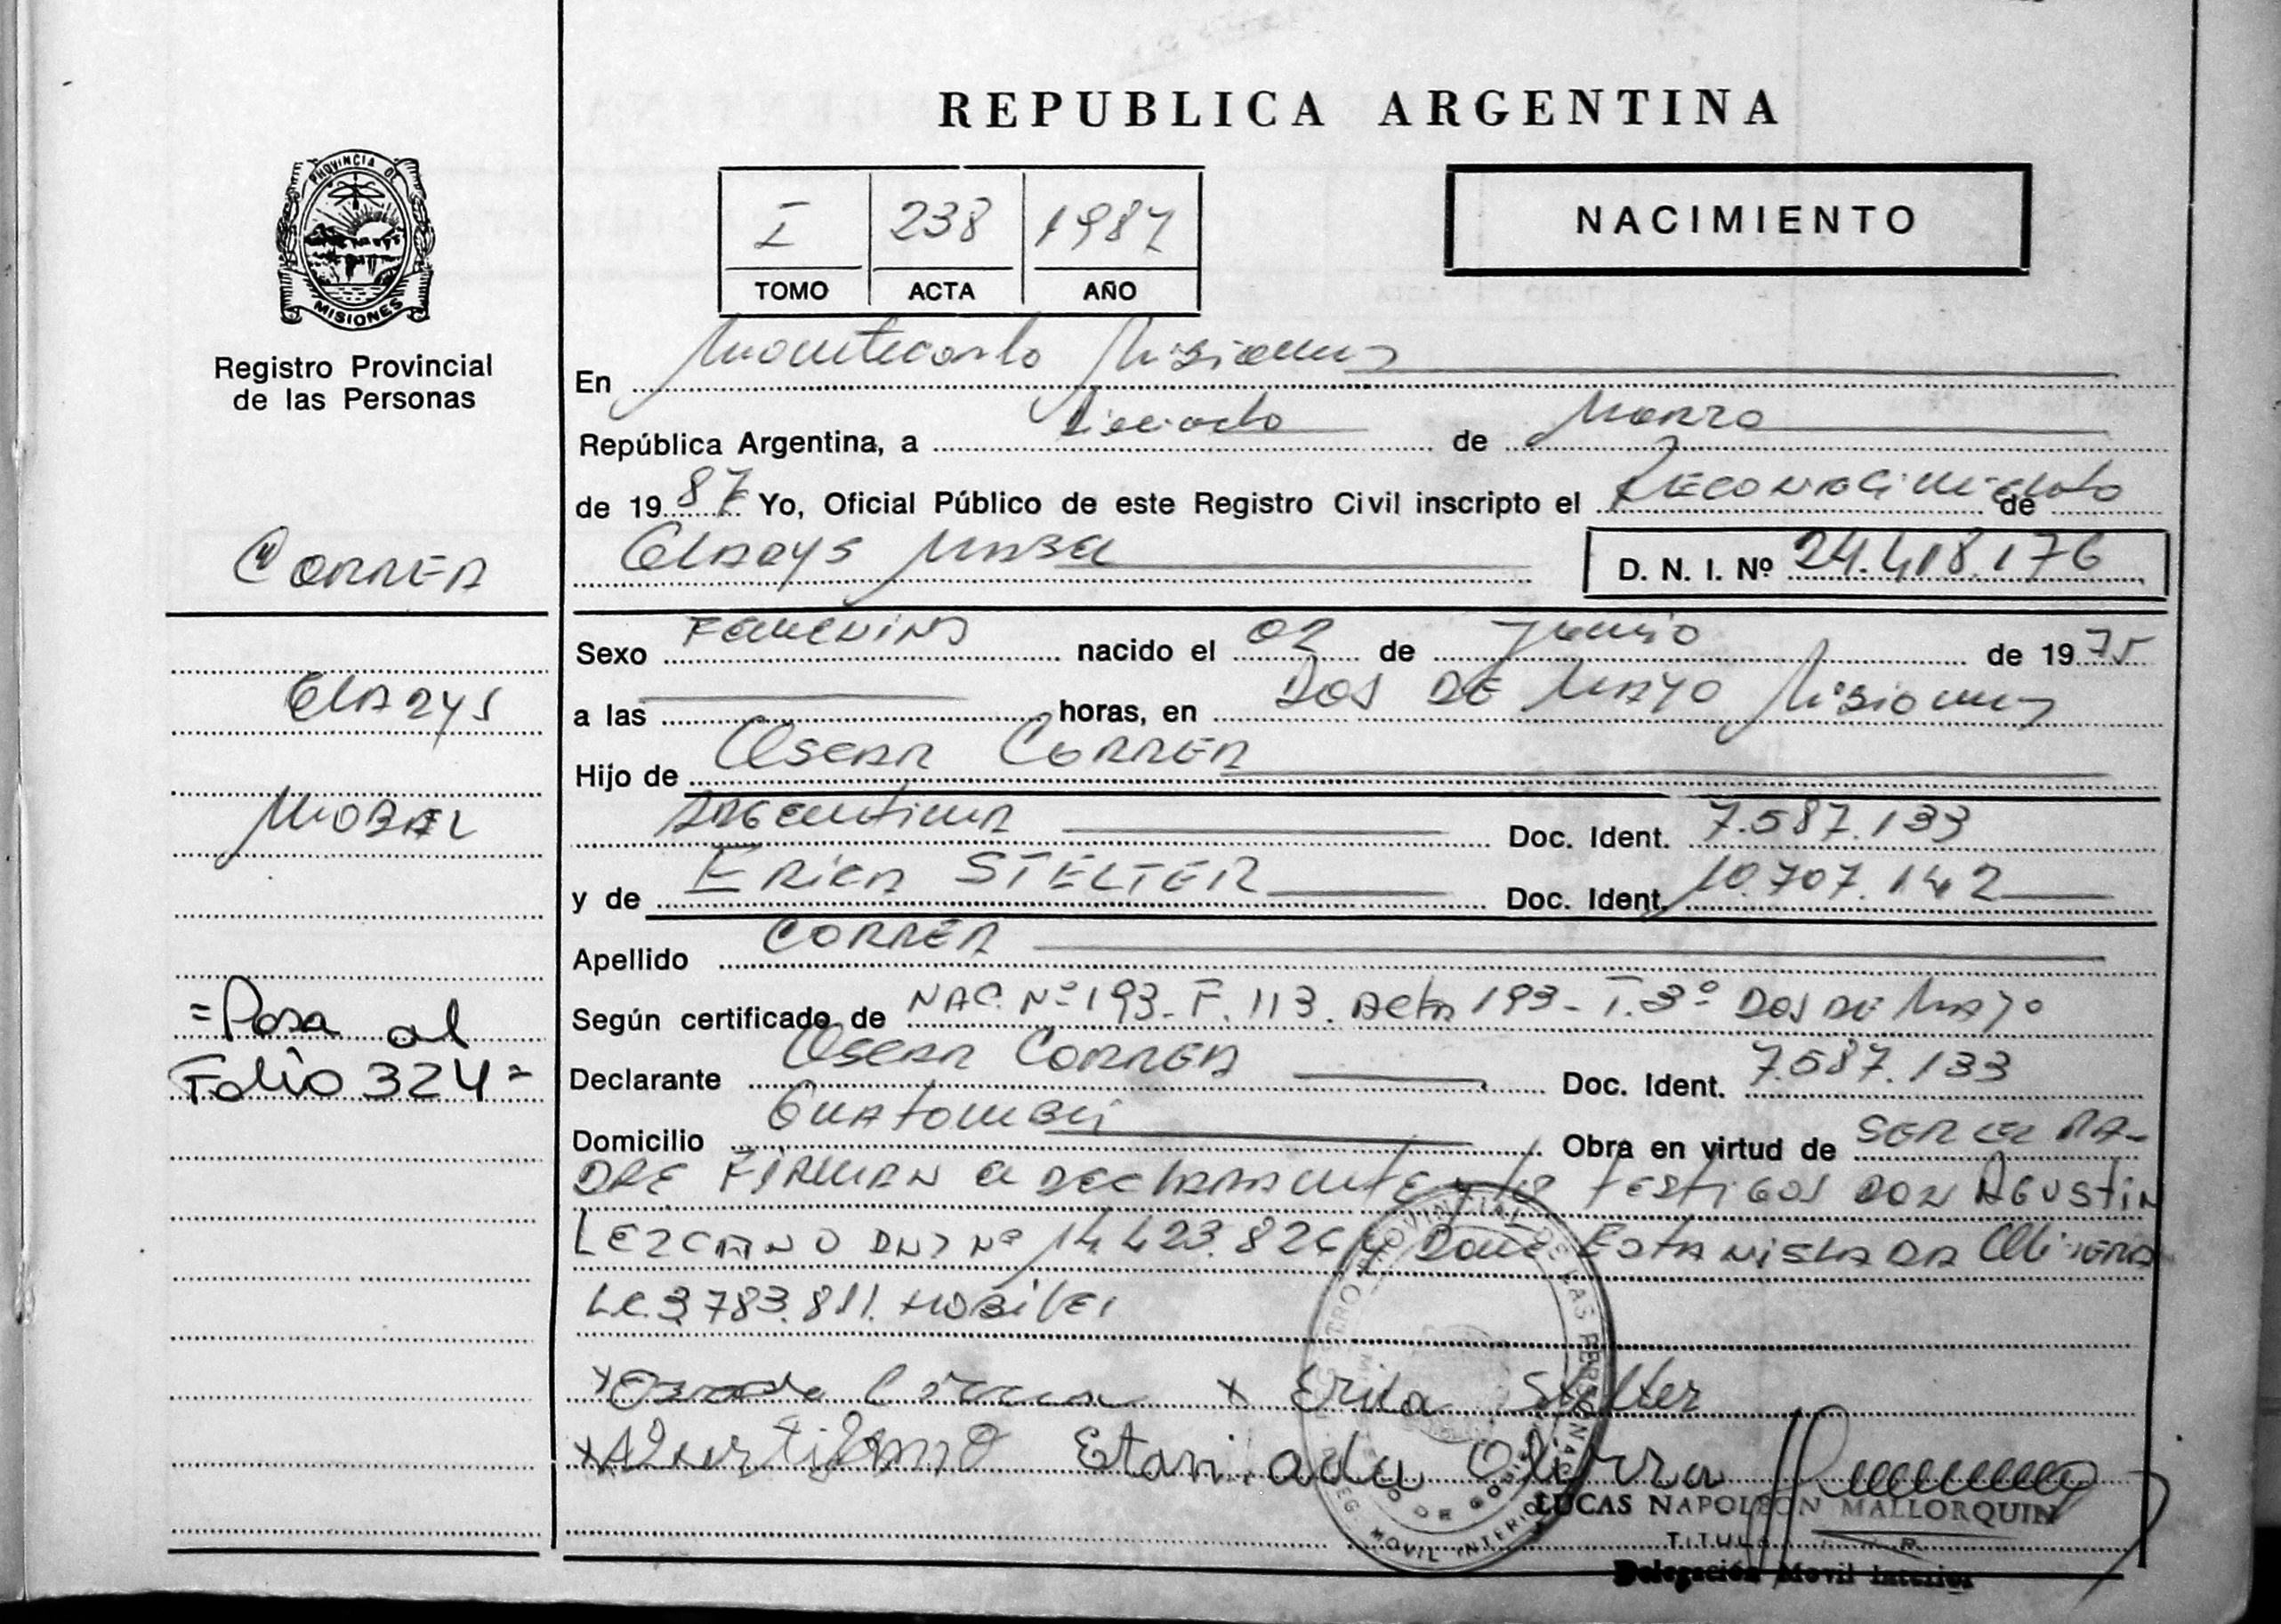 REPUBLICA ARGENTINA
PROVINCIA DE
MISIONES
Registro Provincial
de las Personas
I 238 1987
TOMO ACTA AÑO
NACIMIENTO
En Montecarlo Misiones
República Argentina, a dieciocho de Marzo
de 1987 Yo, Oficial Público de este Registro Civil inscripto el Reconocimiento de
Gladys D. N. I. Nº 24.418.176
CORREA
GLADYS
=Pasa al
Folio 324=
Sexo Femenino nacido el 02 de Junio de 1975
a las horas, en DOS DE MAYO Misiones
Hijo de Oscar CORREA
Argentina Doc. Ident. 7.587.133
y de Erica STELTER Doc. Ident. 10.707.142
Apellido CORREA
Según certificado de NAC. Nº 193-F. 113. Acta 193-T.3º DOS DE MAYO
Declarante Oscar CORREA Doc. Ident. 7.587.133
Domicilio Obra en virtud de SER EL PA-
DRE FIRMAN el DECLARANTE y los testigos DON AGUSTIN
LEZCANO DNI Nº 14.423.826 y Doña Estanislada Olivera
L.C. 3.783.811. Hobiles
x Correa x Erica Stelter
Olivera
LUCAS NAPOLEON MALLORQUIN
TITULAR
Delegación Movil Interior